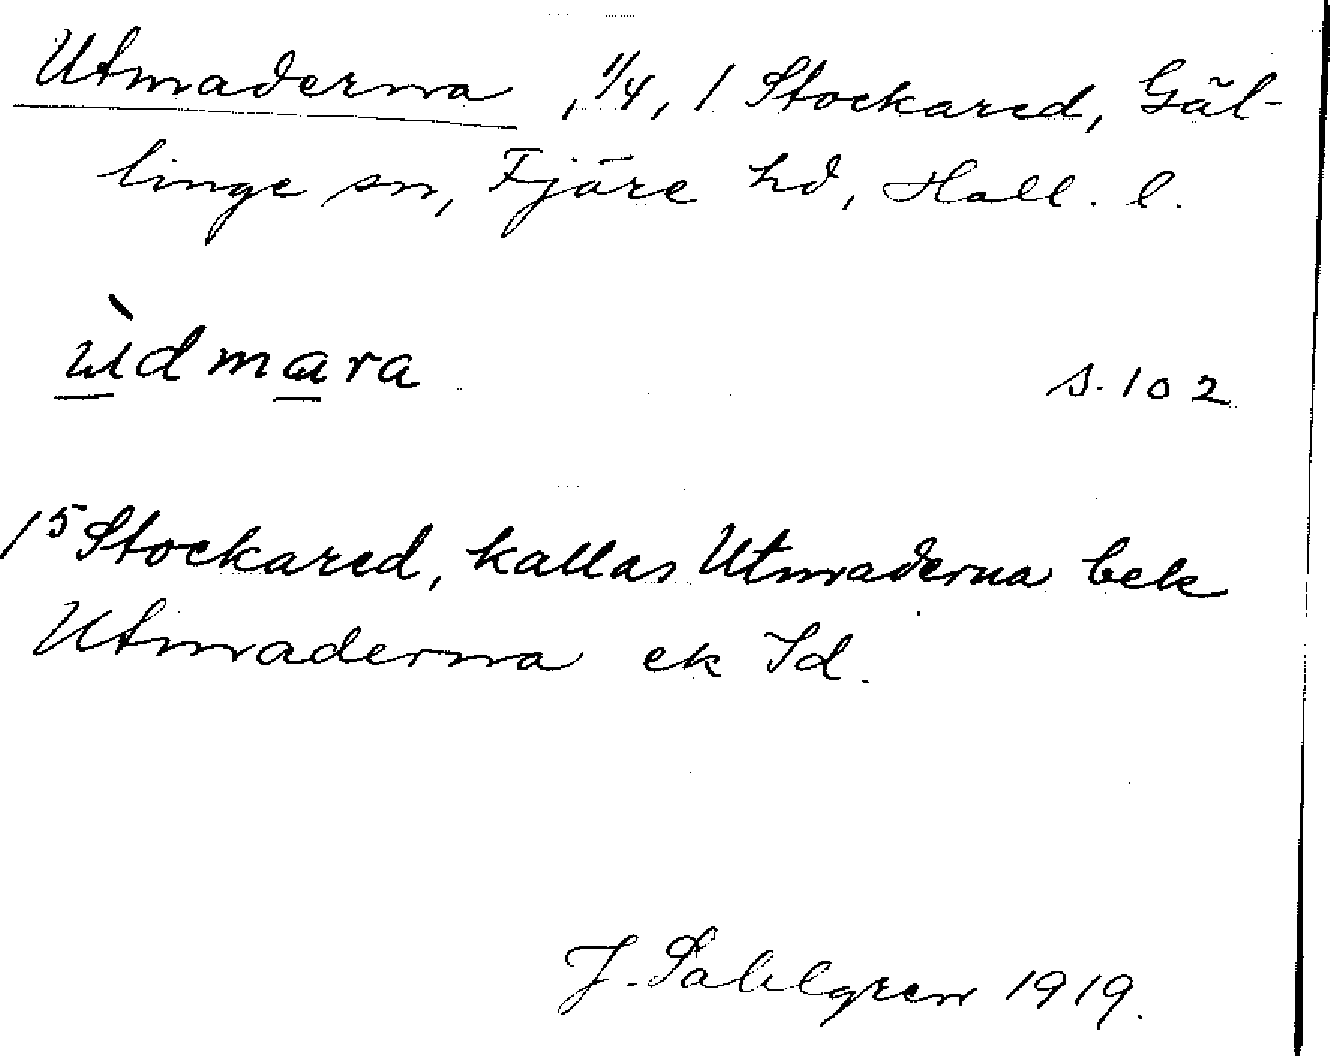 Utmaderna, 1/4, 1 Stockared, Gäl-
linge sn, Fjäre hd, Hall. l.
ùdmara s. 102
1⁵ Stockared, kallas Utmaderna bek
Utmaderna ek Id.
J. Sahlgren 1919.